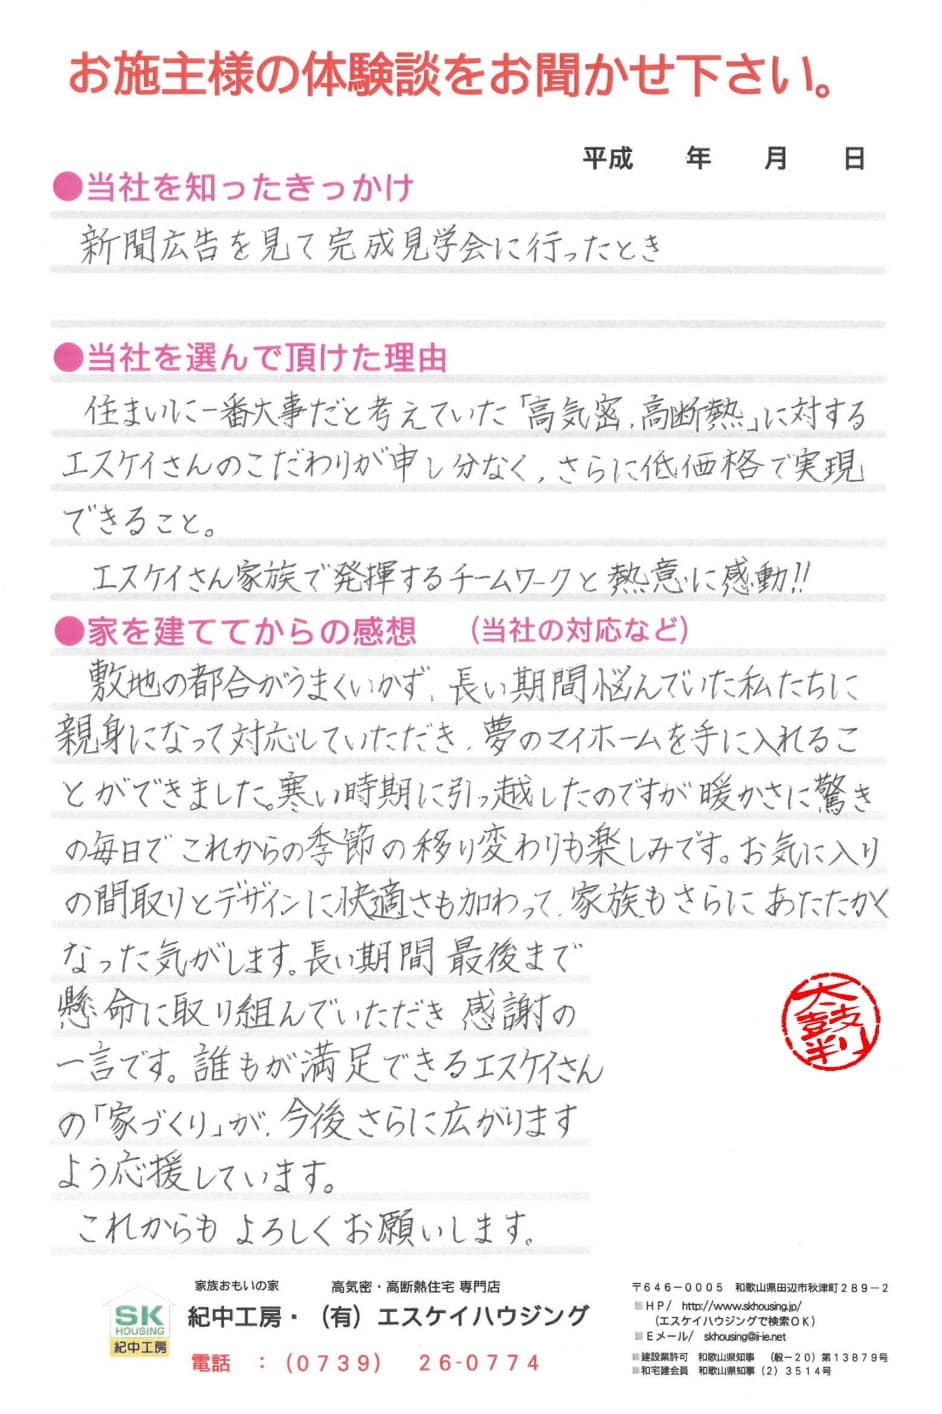 お施主様の体験談をお聞かせ下さい。
平成　　年　　月　　日
●当社を知ったきっかけ
新聞広告を見て完成見学会に行ったとき
●当社を選んで頂けた理由
住まいに一番大事だと考えていた「高気密、高断熱」に対する
エスケイさんのこだわりが申し分なく、さらに低価格で実現
できること。
エスケイさん家族で発揮するチームワークと熱意に感動!!
●家を建ててからの感想　（当社の対応など）
敷地の都合がうまくいかず、長い期間悩んでいた私たちに
親身になって対応していただき、夢のマイホームを手に入れるこ
とができました。寒い時期に引っ越したのですが暖かさに驚き
の毎日で これからの季節の移り変わりも楽しみです。お気に入り
の間取りとデザインに快適さも加わって、家族もさらに あたたかく
なった気がします。長い期間 最後まで
懸命に取り組んでいただき 感謝の
一言です。誰もが満足できるエスケイさん
の「家づくり」が、今後さらに広がります
よう応援しています。
これからも よろしくお願いします。
太鼓判
SK
HOUSING
紀中工房
家族おもいの家　高気密・高断熱住宅 専門店
紀中工房・（有）エスケイハウジング
電話　：（0739）　26-0774
〒646－0005　和歌山県田辺市秋津町289－2
HP/　http://www.skhousing.jp/
（エスケイハウジングで検索OK）
Eメール/　skhousing@i-ie.net
建設業許可　和歌山県知事　（般－20）第13879号
和宅建会員　和歌山県知事（2）3514号